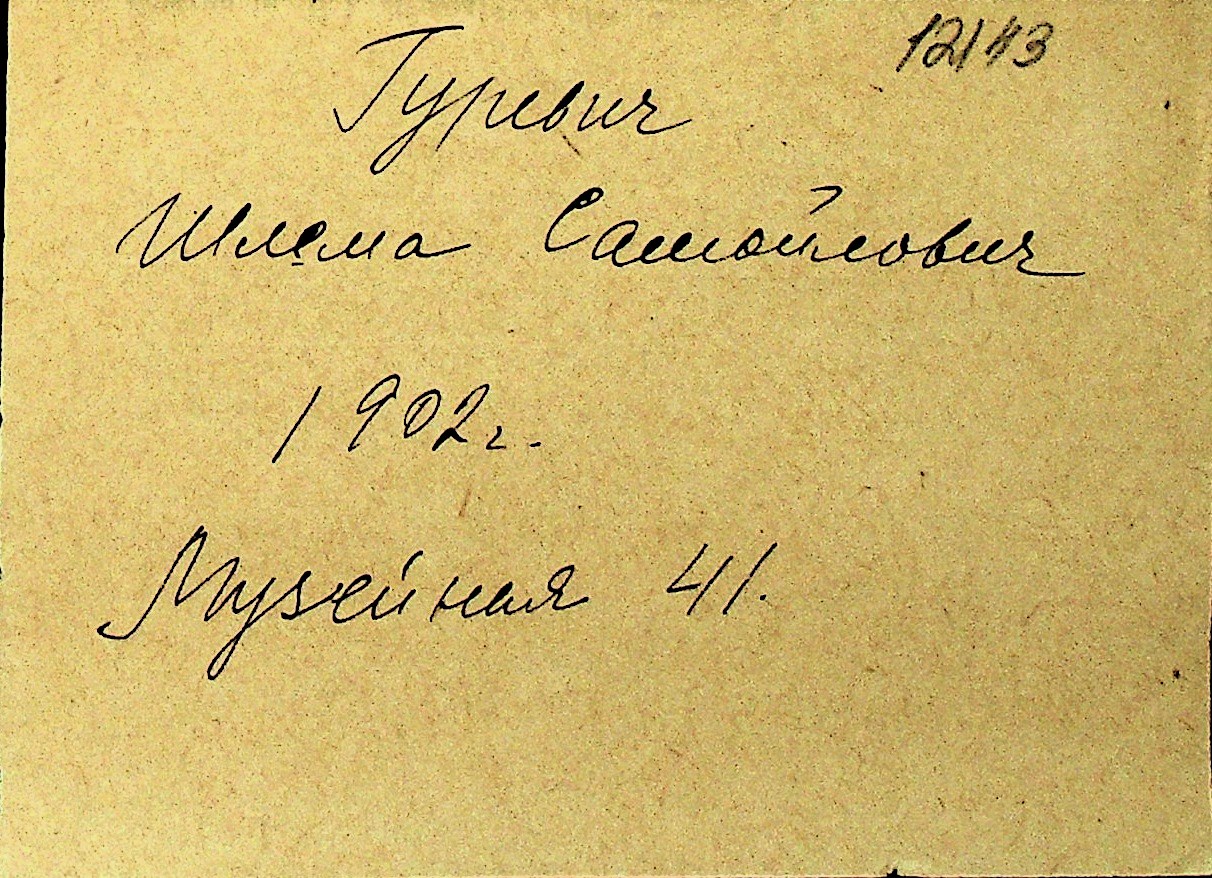 12143
Гуревич
Шлема Самойлович
1902г.
Музейная 41.